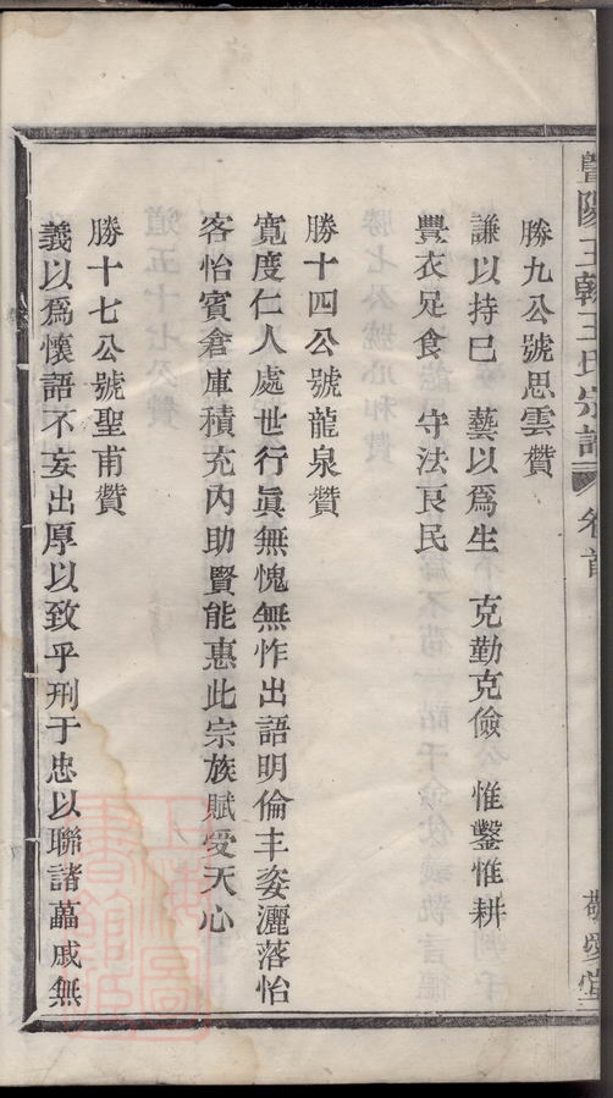 暨陽王韓王氏宗譜 卷首 敬愛堂
勝九公號思雲贊
謙以持巳 藝以爲生 克勤克儉 惟鑿惟耕
豐衣足食 守法良民
勝十四公號龍泉贊
寬度仁人處世行眞無愧無怍出語明倫丰姿灑落怡
客怡賓倉庫積充內助賢能惠此宗族賦受天心
勝十七公號聖甫贊
義以爲懷語不妄出厚以致乎刑于忠以聯諸葛戚無